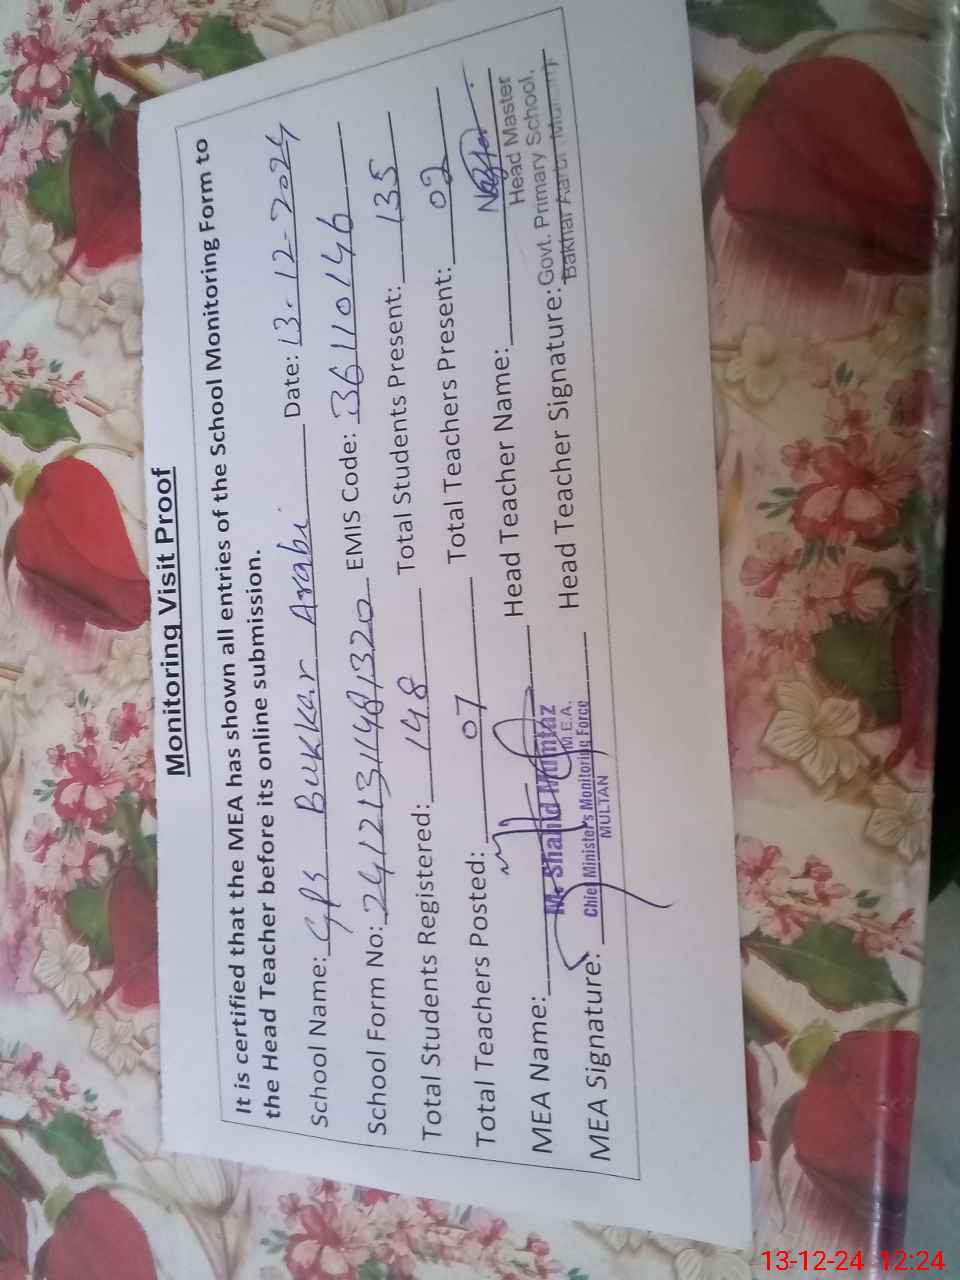 Monitoring Visit Proof
It is certified that the MEA has shown all entries of the School Monitoring Form to
the Head Teacher before its online submission.
School Name: GPS Bukkar Arabi Date: 13-12-2024
School Form No: EMIS Code: 36110146
Total Students Registered: 148 Total Students Present: 135
Total Teachers Posted: 07 Total Teachers Present: 02
MEA Name: M. Shahid Mumtaz Head Teacher Name:
M.E.A. Head Master
MEA Signature: Chief Minister's Monitoring Force Head Teacher Signature: Govt. Primary School,
MULTAN Bakhar Aarbi
13-12-24 12:24